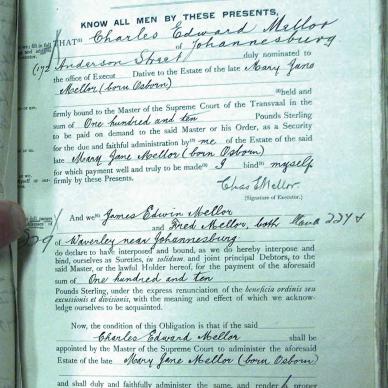 KNOW ALL MEN BY THESE PRESENTS,
THAT Charles Edward Mellor
of Johannesburg
(172 Anderson Street duly nominated to
the office of Execut Dative to the Estate of the late Mary Jane
Mellor (born Osborn)
held and
firmly bound to the Master of the Supreme Court of the Transvaal in the
sum of One hundred and ten Pounds Sterling
to be paid on demand to the said Master or his Order, as a Security
for the due and faithful administration by me of the Estate of the said
late Mary Jane Mellor (born Osborn)
for which payment well and truly to be made I bind myself
firmly by these Presents.
Chas E Mellor.
[Signature of Executor.]
And we James Edwin Mellor
and Fred Mellor, both
of Waverley near Johannesburg
do declare to have interposed and bound, as we do hereby interpose and
bind, ourselves as Sureties, in solidum, and joint principal Debtors, to the
said Master, or the lawful Holder hereof, for the payment of the aforesaid
sum of One hundred and ten
Pounds Sterling, under the express renunciation of the beneficia ordinis seu
excussionis et divisionis, with the meaning and effect of which we acknow-
ledge ourselves to be acquainted.
Now, the condition of this Obligation is that if the said
Charles Edward Mellor shall be
appointed by the Master of the Supreme Court to administer the aforesaid
Estate of the late Mary Jane Mellor (born Osborn)
and shall duly and faithfully administer the same, and render a proper